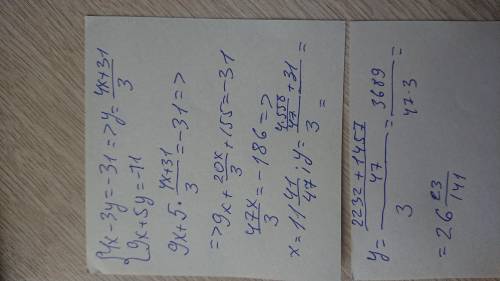 {4x-3y=-31 => y=(4x+31)/3
{9x+5y=-11
9x+5·(4x+31)/3=-31 =>
=> 9x+20x/3+155=-31
47x/3=-186 =>
x=11 41/47; y=(4·558/47+31)/3=
=
y=((2232+1457)/47)/3=3689/(47·3)=
=26 23/141